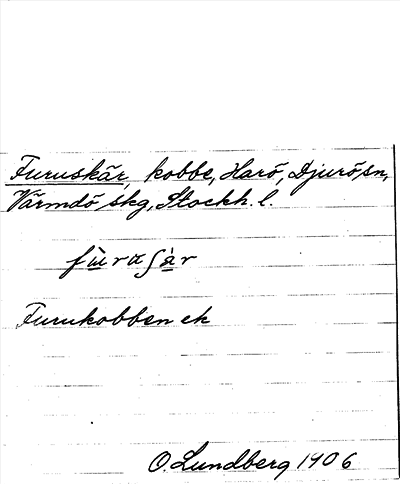 Furuskär, kobbe, Harö, Djurö sn,
Värmdö skg, Stockh. l.
Furukobben ek
O. Lundberg 1906